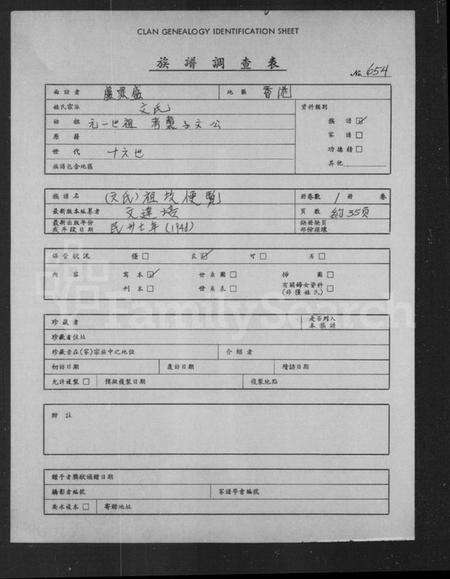 CLAN GENEALOGY IDENTIFICATION SHEET
族譜調查表
No. 654
面談者 盧眾威 地區 香港
姓氏宗派 文氏 資料類別
始祖 元一世祖 子文公 族譜 ☑
原籍 家譜 □
世代 十六世 功德精 □
族譜包含地區 其他
族譜名 (文氏)祖坟便覽 冊卷數 1 冊 卷
最新版本編纂者 文達 頁數 約35頁
最新出版年份 缺冊缺頁
或手段日期 民卅七年 (1948) 部份補缺
保管狀況 優 □ 良 ☑ 可 □ 劣 □
內容 寫本 ☑ 世系圖 □ 掃圖 □
刊本 □ 世系表 □ 有關婦女資料 □
(非僅姓氏)
珍藏者 是否列入
本族譜
珍藏者住址
珍藏者在(家)宗族中之地位 介紹者
初訪日期 復訪日期 續訪日期
允許複製 □ 預擬複製日期 複製地點
附註
贈予者獎狀頒贈日期
攝影者編號 家譜學會編號
要求複本 □ 寄贈地址
FamilySearch